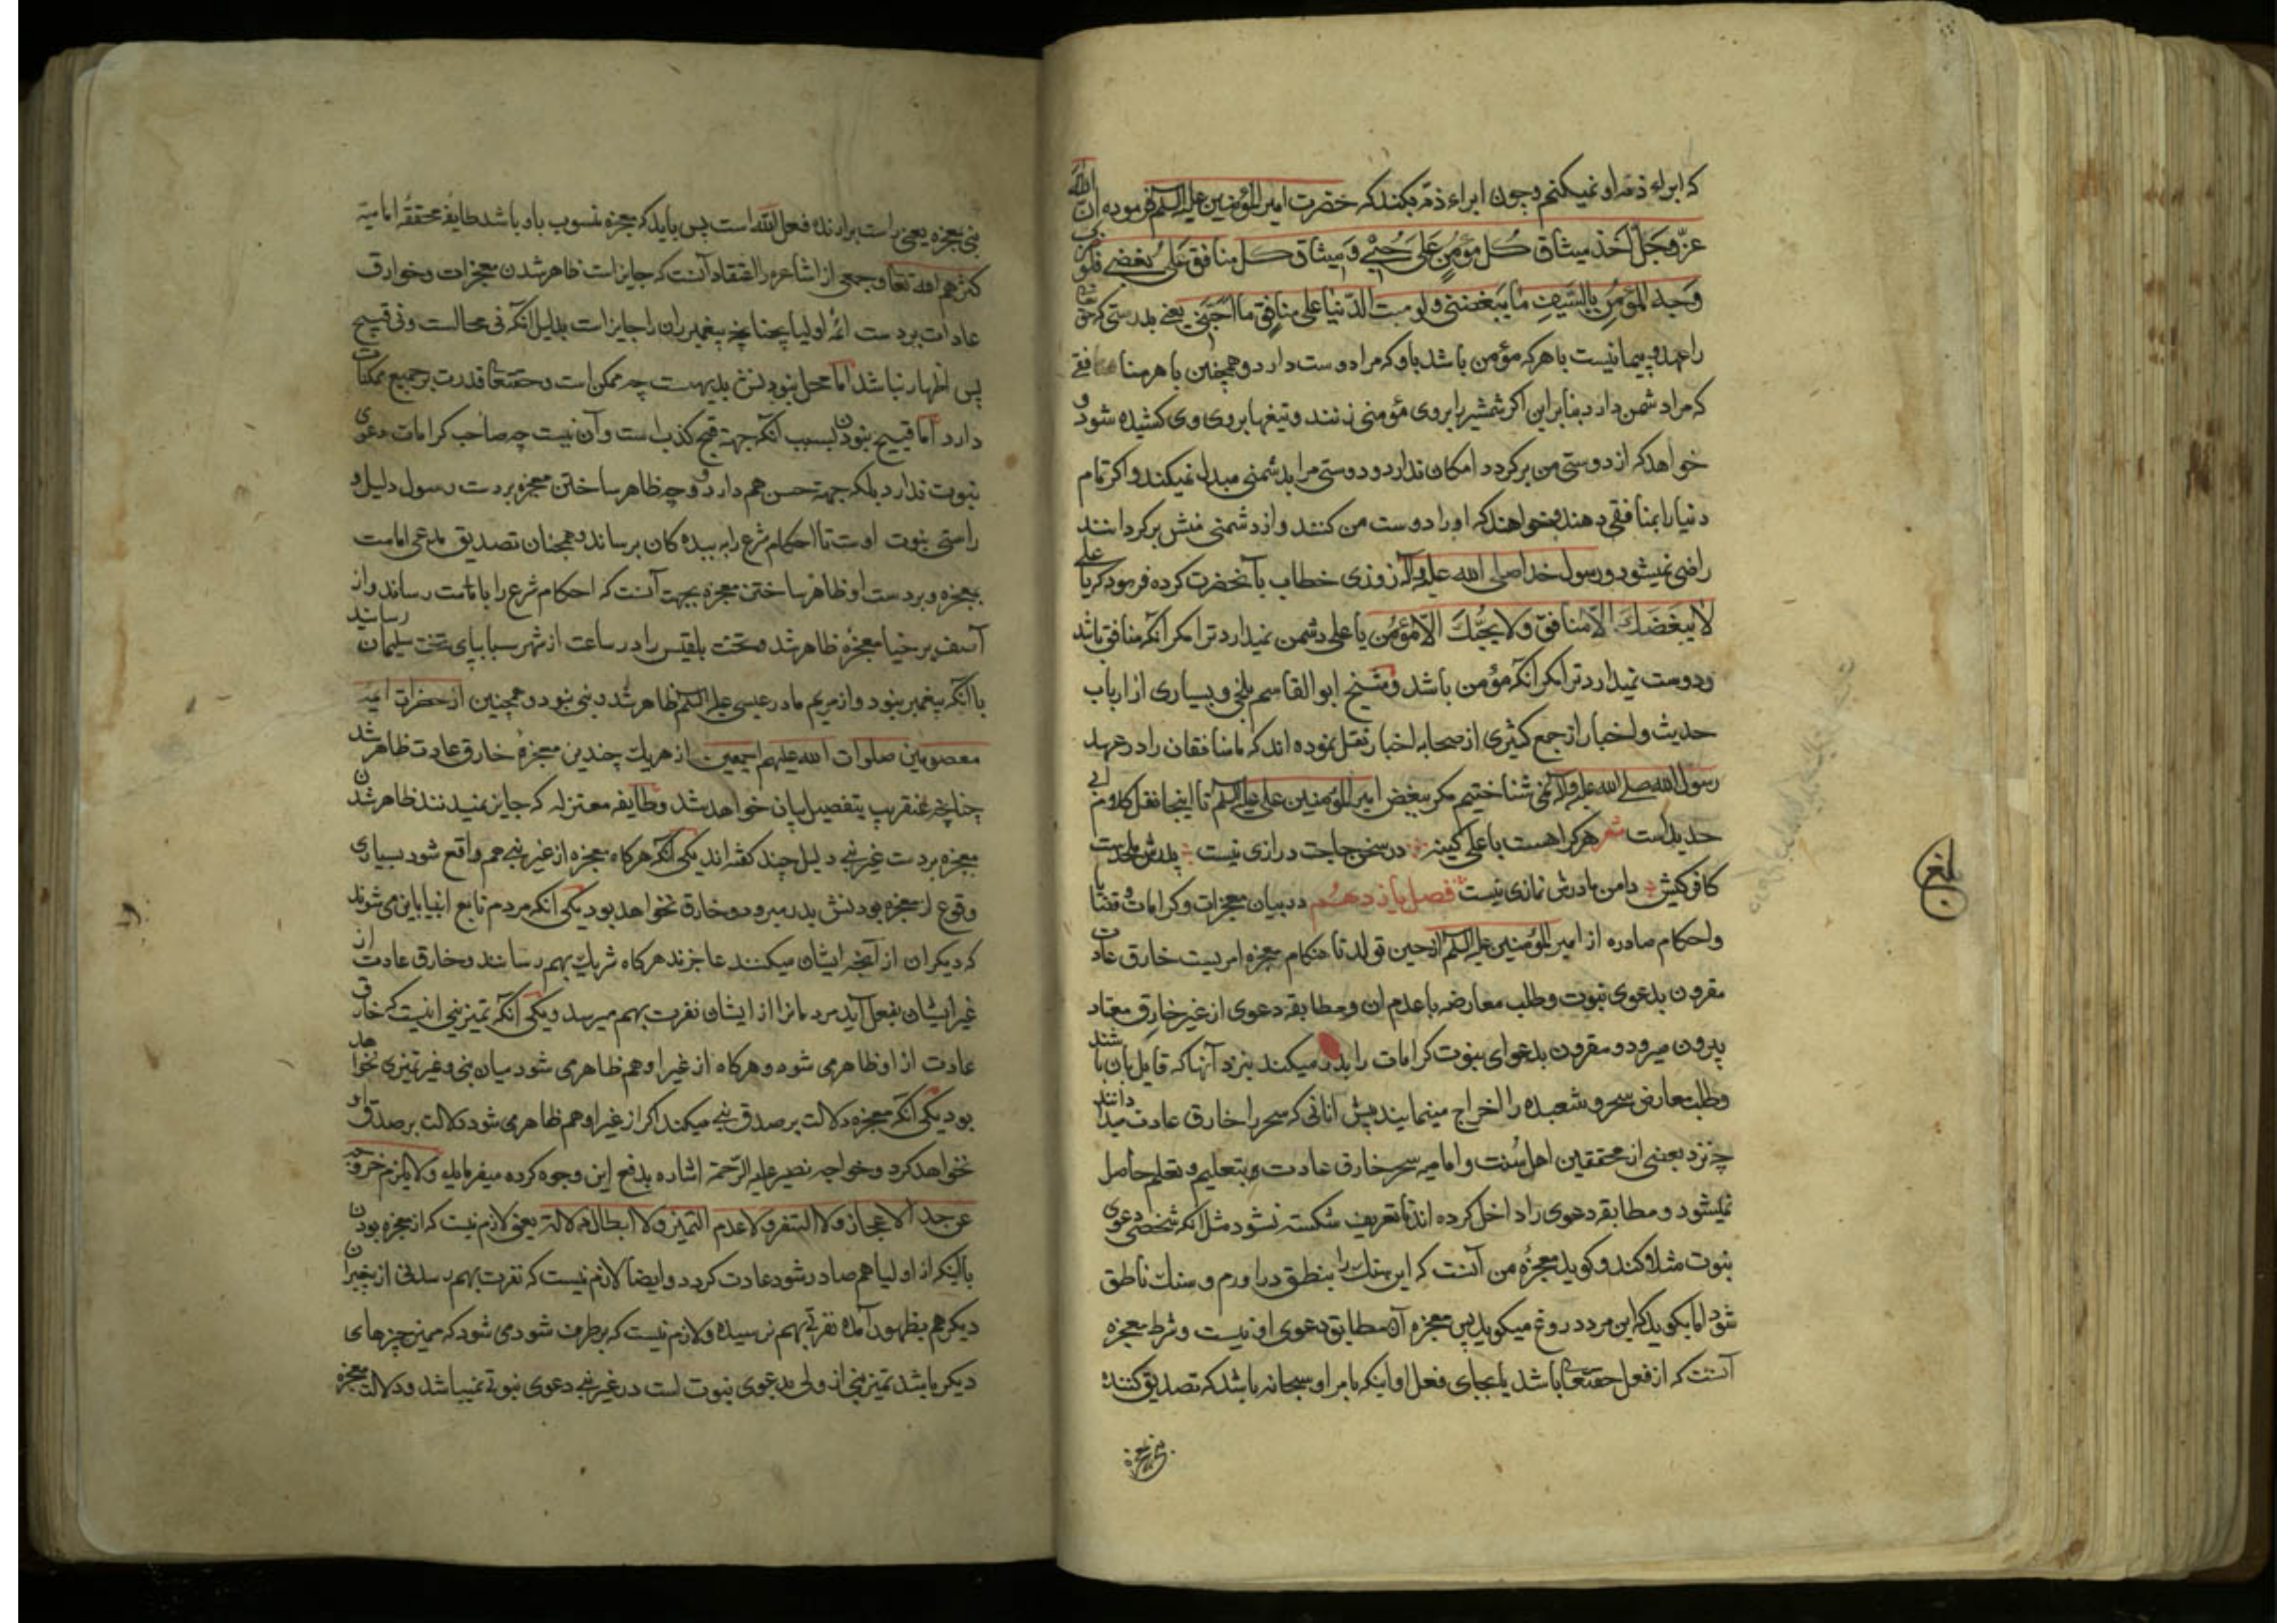 که ابراء ذمهٔ او نمیکنم وچون ابراء ذمه بکند که حضرت امیر المؤمنین علیه السلم فرموده ان الله
عزّ وجَلّ اَخذ میثاق کُل مؤمنٍ عَلی حُبّی وَمیثاق کل منافق عَلی بُغضی فلو
وجه المؤمن بالسَّیف ما یبغضنی ولو صبت الدّنیا علی منافق ما اَحَبَّنی یعنی بدرستی که حق
را عهد و پیمانیست با هر که مؤمن باشد باو که مرا دوست دارد و همچنین با هر منافقی
که مرا دشمن دارد بنابراین اکر شمشیر بر روی مؤمنی زنند و تیغها بروی وی کشیده شود و
خواهد که از دوستی من برکردد امکان ندارد و دوستی مرا بدشمنی مبدل نمیکند و اکر تمام
دنیا را بمنافقی دهند و خواهند که او را دوست من کنند و از دشمنی منش برکردانند
راضی نمیشود و رسول خدا صلی الله علیه وآله روزی خطاب بآنحضرت کرده فرمود که یا علی
لا یبغضک الّا منافق ولا یحبّک الّا مؤمن یا علی دشمن نمیدارد ترا مکر آنکه منافق باشد
ودوست نمیدارد ترا مکر آنکه مؤمن باشد و شیخ ابو القاسم بلخی و بسیاری از ارباب
حدیث و اخبار از جمع کثیری از صحابه اخبار نقل نموده اند که ما منافقان را در عهد
رسول الله صلی الله علیه وآله نمی شناختیم مکر ببغض امیر المؤمنین علی علیه السلم تا اینجا نقل کلام ابی
حدید است شعر هر کرا هست با علی کینه در سخن حاجت درازی نیست
کافر کیش دامن مادرش نمازی نیست فصل یازدهم در بیان معجزات وکرامات و قضایا
واحکام صادره از امیر المؤمنین علیه السلم از حین تولد تا هنکام معجزه امریست خارق عادت
مقرون بدعوی نبوت وطلب معارضه با عدم ان ومطابقه دعوی از غیر خارق معتاد
بیرون میرود و مقرون بدعوای نبوت کرامات را بدر میکند نزد آنها که قایل بان باشند
وطلب معارض سحر و شعبده را اخراج مینمایند پیش انانی که سحر را خارق عادت میدانند
چه نزد بعضی از محققین اهل سُنت وامامیه سحر خارق عادت وبتعلیم وتعلم حاصل
نمیشود ومطابقه دعوی را داخل کرده اند تا تعریف شکسته نشود مثل انکه شخصی دعوی
نبوت مثلا کند وکوید معجزهٔ من آنست که این سنک را بنطق در اورم وسنک ناطق
شود اما بکوید که این مرد دروغ میکوید پس معجزه آن مطابق دعوی او نیست وشرط معجزه
آنست که از فعل حقتعالی باشد یا بجای فعل او اینکه بامر او سبحانه باشد که تصدیق کننده
بلغ
نبی بمعجزه یعنی راست برارنده فعل الله است پس باید که معجزه منسوب باو باشد طایفه محققهٔ امامیه
کثرهم الله تعالی وجمعی از اشاعره را اعتقاد آنست که جایز است ظاهر شدن معجزات وخوارق
عادات بر دست ائمه اولیا چنانچه پیغمبران را جایز است بدلیل انکه نی محالست ونی قبیح
پس اظهار نباشد اما محال نبودنش بدیهست چه ممکن است وحقتعالی قدرت بر جمیع ممکنات
دارد اما قبیح نبودن بسبب آنکه جهة قبح کذب است وآن نیست چه صاحب کرامات دعوی
نبوت ندارد بلکه جهة حسن هم دارد و چه ظاهر ساختن معجزه بر دست رسول دلیل و
راستی نبوت اوست تا احکام شرع را به بنده کان برساند و همچنان تصدیق مدعی امامت
بمعجزه وبر دست او ظاهر ساختن معجزه بجهت آنست که احکام شرع را با امامت رساند واز
آصف برخیا معجزه ظاهر شد و تخت بلقیس را در ساعت از شهر سبا بپای تخت سلیمان رسانید
با آنکه پیغمبر نبود واز مریم مادر عیسی علیه السلم ظاهر شد و نبی نبود و همچنین از حضرات ائمه
معصومین صلوات الله علیهم اجمعین از هر یک چندین معجزهٔ خارق عادت ظاهر شد
چنانچه عنقریب بتفصیل بیان خواهد شد وطایفه معتزله که جایز نمیدنند ظاهر شدن
معجزه بر دست غیر نبی دلیل چند کفته اند یکی آنکه هر کاه معجزه از غیر نبی هم واقع شود بسیاری
وقوع از معجزه بودنش بدر میرود و خارق نخواهد بود یکی انکه مردم تابع انبیا باین می شوند
که دیکران از آنچه ایشان میکنند عاجزند هر کاه شریک بهم رسانند و خارق عادت از
غیر ایشان بفعل آید مردمانرا از ایشان نفرت بهم میرسد ویکی آنکه تمیز نبی اینست که خارق
عادت از او ظاهر می شود وهرکاه از غیر او هم ظاهر می شود میان نبی وغیر تمیزی نخواهد
بود یکی انکه معجزه دلالت بر صدق نبی میکند اکر از غیر او هم ظاهر می شود دلالت بر صدق او
نخواهد کرد وخواجه نصیر علیه الرّحمة اشاره بدفع این وجوه کرده میفرماید ولا یلزم خروجه
عن حد الاعجاز ولا التنفر ولا عدم التمیز ولا ابطال دلالة یعنی لازم نیست که از معجزه بودن
بآنکه از اولیا هم صادر شود عادت کردد و ایضا لازم نیست که نفرت بهم رسد از پیغمبران
دیکر هم بظهور آمده نفرتی بهم نرسیده ولازم نیست که بر طرف شود می شود که ممیز چیزهای
دیکر باشد تمیز نبی از ولی بدعوی نبوت است در غیر نبی دعوی نبوتی نمیباشد ودلالت معجزه